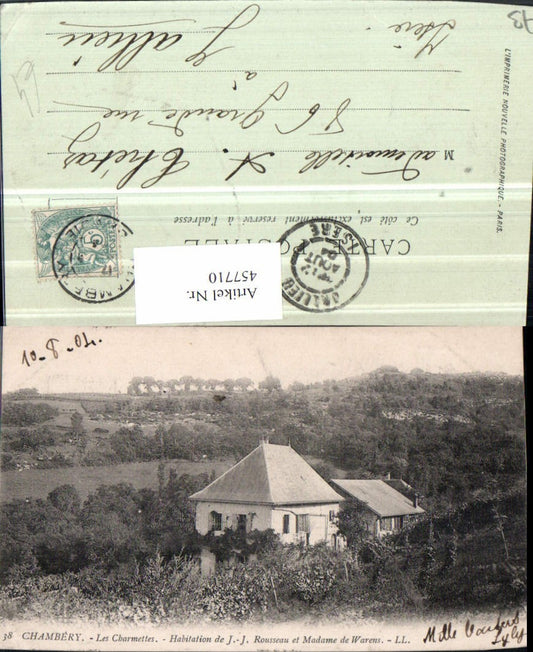 CARTE POSTALE
Ce côté est exclusivement réservé à l'adresse
Mademoiselle A.
86 grande rue
à
Jallieu
Isère
L'IMPRIMERIE NOUVELLE PHOTOGRAPHIQUE. - PARIS.
JALLIEU
ISÈRE
AOUT
CHAMBERY
Artikel Nr.
457710
10-8-04.
38 CHAMBÉRY. - Les Charmettes. - Habitation de J.-J. Rousseau et Madame de Warens. - LL.
Mlle